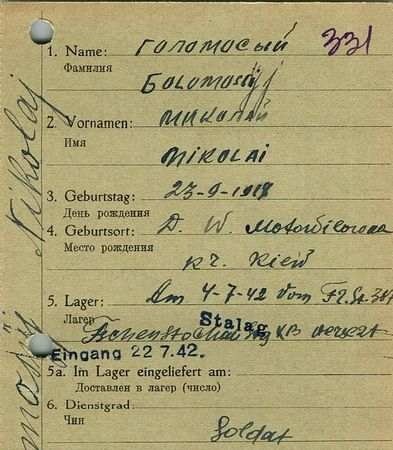 331
1. Name: Голомосый
Фамилия
Golomosyj
2. Vornamen: Миколай
Имя
Nikolai
3. Geburtstag: 23-9-1918
День рождения
4. Geburtsort: D. W.
Место рождения
Kr. Kiew
5. Lager: Am 4-7-42 vom
Лагер
Stalag
Eingang 22 7.42.
5a. Im Lager eingeliefert am:
Доставлен в лагер (число)
6. Dienstgrad:
Чин
Soldat
Nikolaj